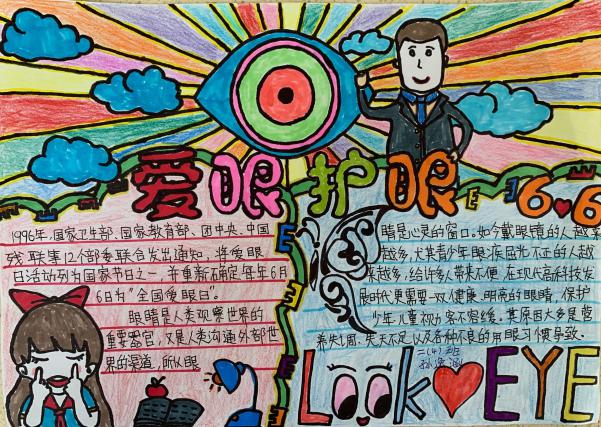 爱眼护眼 6♥6
1996年,国家卫生部、国家教育部、团中央、中国
残联等12个部委联合发出通知,将爱眼
日活动列为国家节日之一,并重新确定每年6月
6日为“全国爱眼日”。
眼睛是人类观察世界的
重要器官,又是人类沟通外部世
界的渠道,所以眼
睛是心灵的窗口。如今戴眼镜的人越来
越多,尤其青少年眼疾屈光不正的人越
来越多,给许多人带来不便,在现代高科技发
展时代更需要一双健康、明亮的眼睛,保护
少年儿童视力刻不容缓,其原因大多是营
养失调,先天不足以及各种不良的用眼习惯导致。
二(4)班
Look♥EYE
E
E
E
E